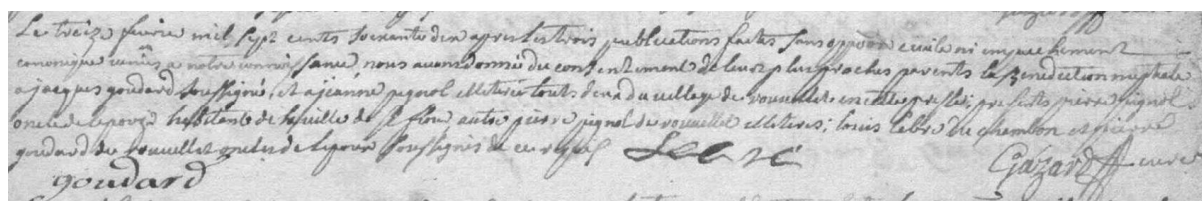 Le treize fevrie mil sept cents soixante dix apres les trois publications faites sans oppôon civile ni empechement
canonique venus a notre connoissance nous avons donné du consentement de leurs plus proches parents la Benediction nuptiale
a jacques goudard soussigné, et a jeanne pignol illiterée touts deux du village de rouvellet en cette presents pierre pignol
oncle de lepouze habitants de la ville de St flour autre pierre pignol de rouvellet illiteres; louis lebre du chambon et pierre
goudard de rouvellet oncles de lepoux soussignés de ce requis Lebre Gazard curé
goudard